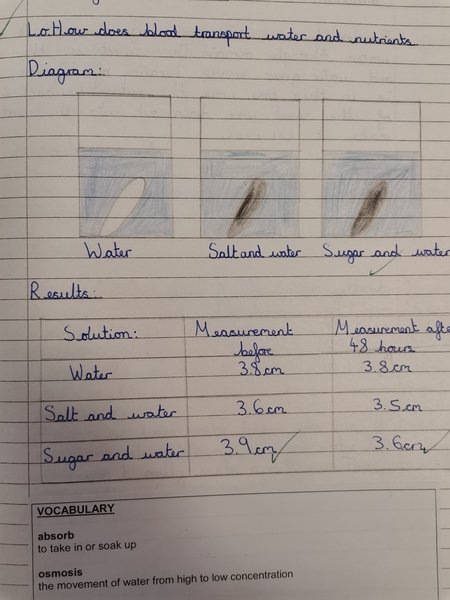 L.o.How does blood transport water and nutrients.
Diagram:
Water Salt and water Sugar and water
Results:
Solution: Measurement before Measurement afte 48 hours
Water 3.8cm 3.8cm
Salt and water 3.6cm 3.5cm
Sugar and water 3.9cm 3.6cm
VOCABULARY
absorb
to take in or soak up
osmosis
the movement of water from high to low concentration